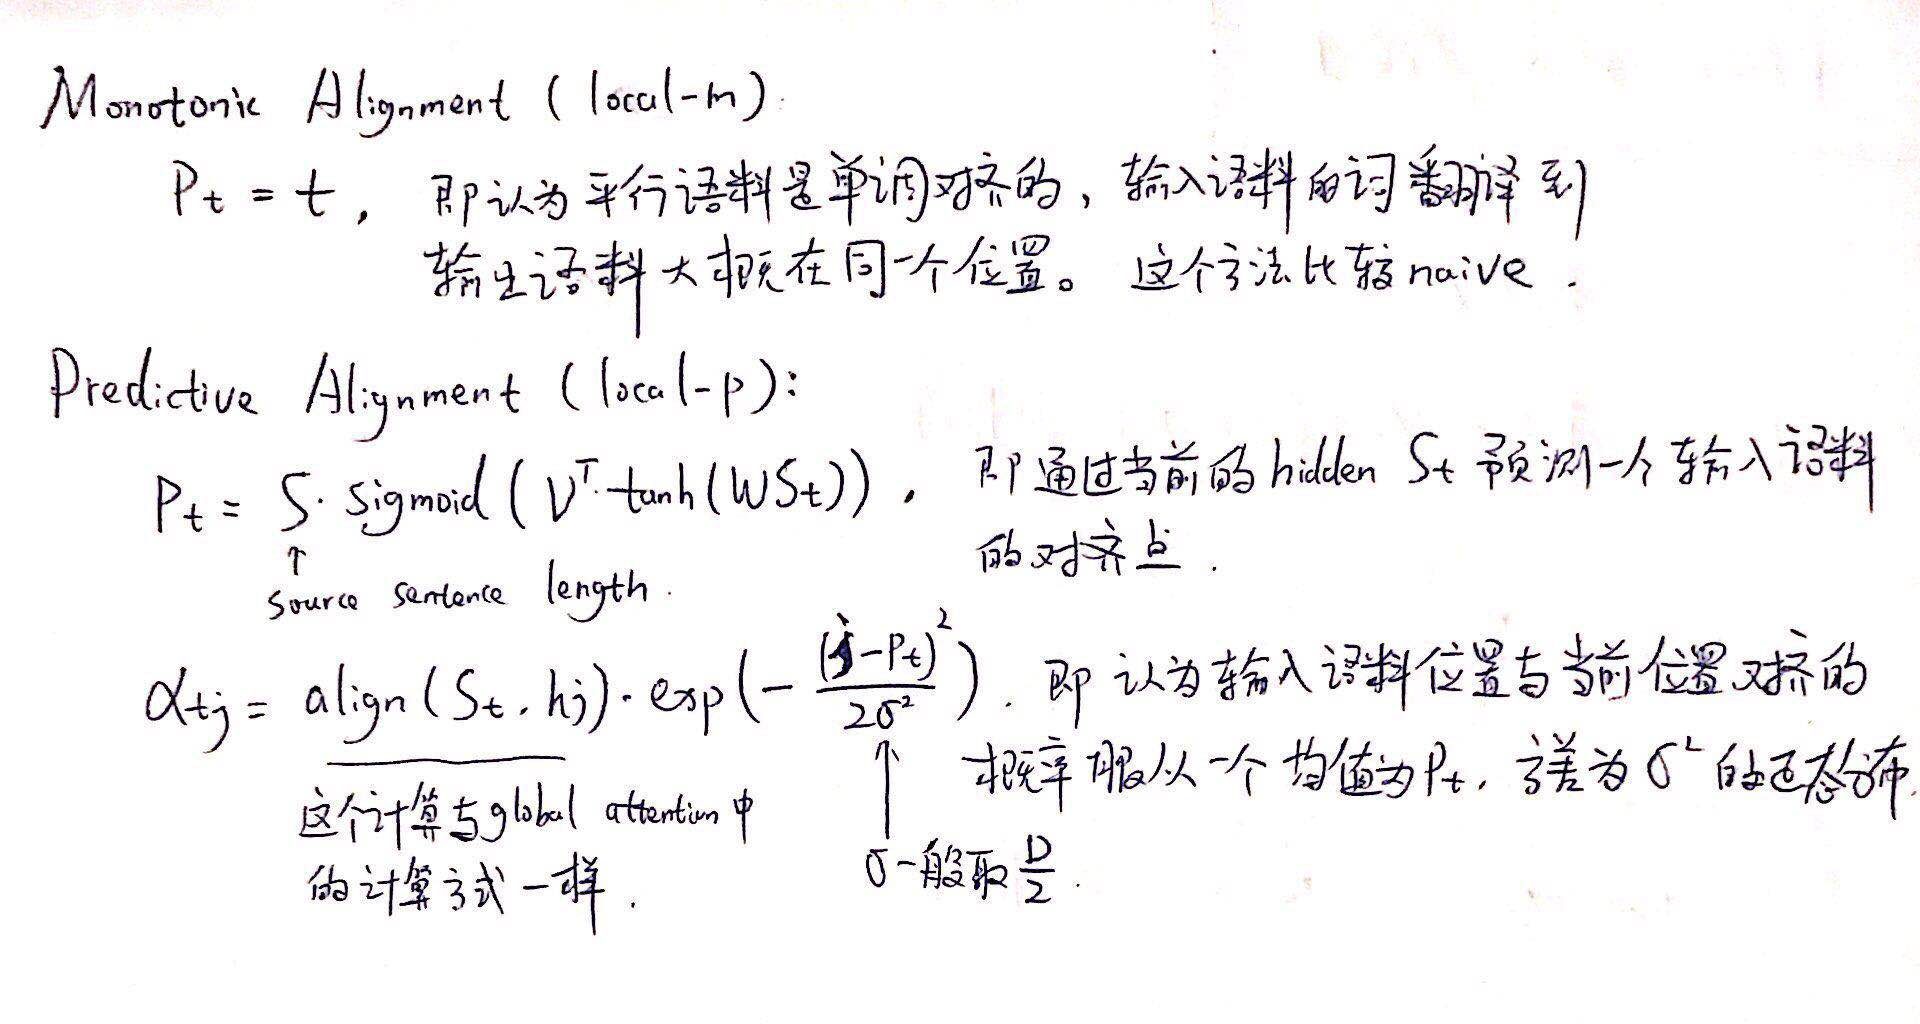 Monotonic Alignment (local-m)
Pt = t, 即认为平行语料是单调对齐的,输入语料的词翻译到
输出语料大概在同一个位置。这个方法比较naive.
Predictive Alignment (local-p):
Pt = S·sigmoid(Vᵀ·tanh(WSt)), 即通过当前的hidden St 预测一个输入语料
的对齐点.
↑
source sentence length.
αtj = align(St, hj)·exp(-(j-Pt)²/2σ²). 即认为输入语料位置与当前位置对齐的
概率服从一个均值为Pt, 方差为σ²的正态分布.
这个计算与global attention中
的计算方式一样.
↑
σ一般取D/2.